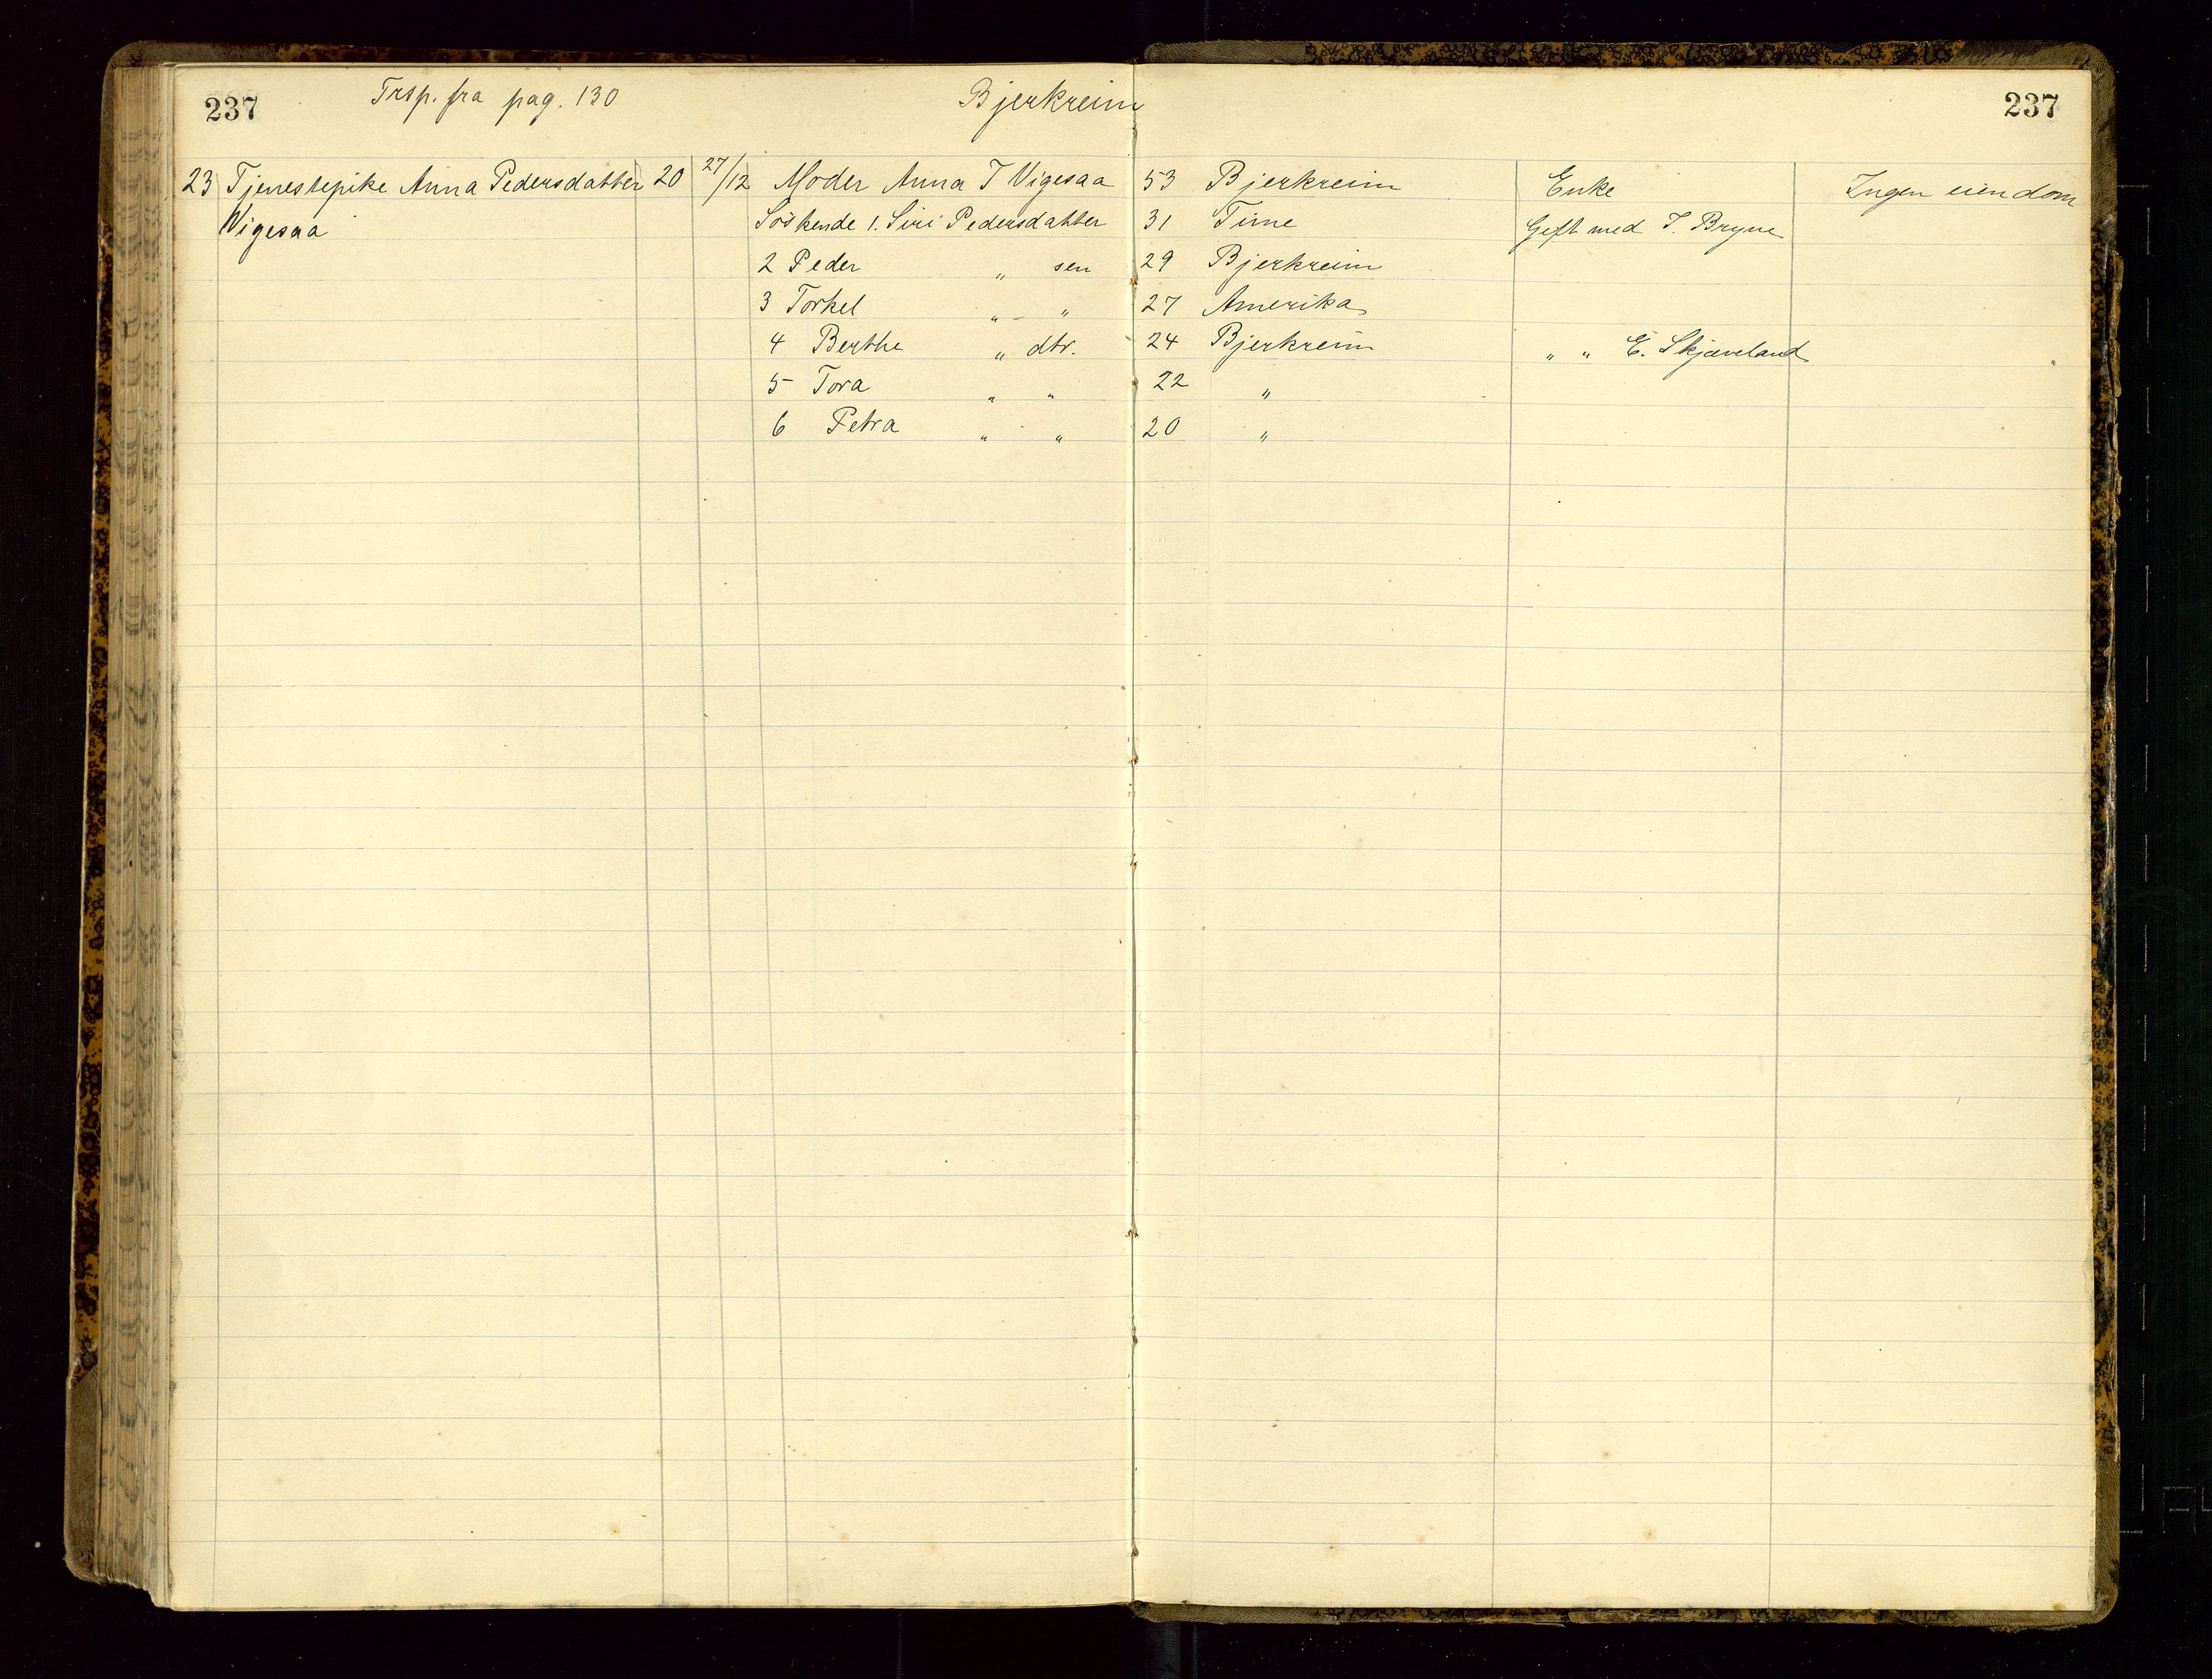 237 Trsp. fra pag. 130 Bjerkreim 237
23 Tjenestepike Anna Pedersdatter 20 27/12 Moder Anna T Vigesaa 53 Bjerkreim Enke Ingen eiendom
Vigesaa Söskende 1. Siri Pedersdatter 31 Time Gift med T. Bryne
2 Peder " sen 29 Bjerkreim
3 Torkel " " 27 Amerika
4 Berthe " dtr. 24 Bjerkreim " " E. Skjæveland
5 Tora " " 22 "
6 Petra " " 20 "